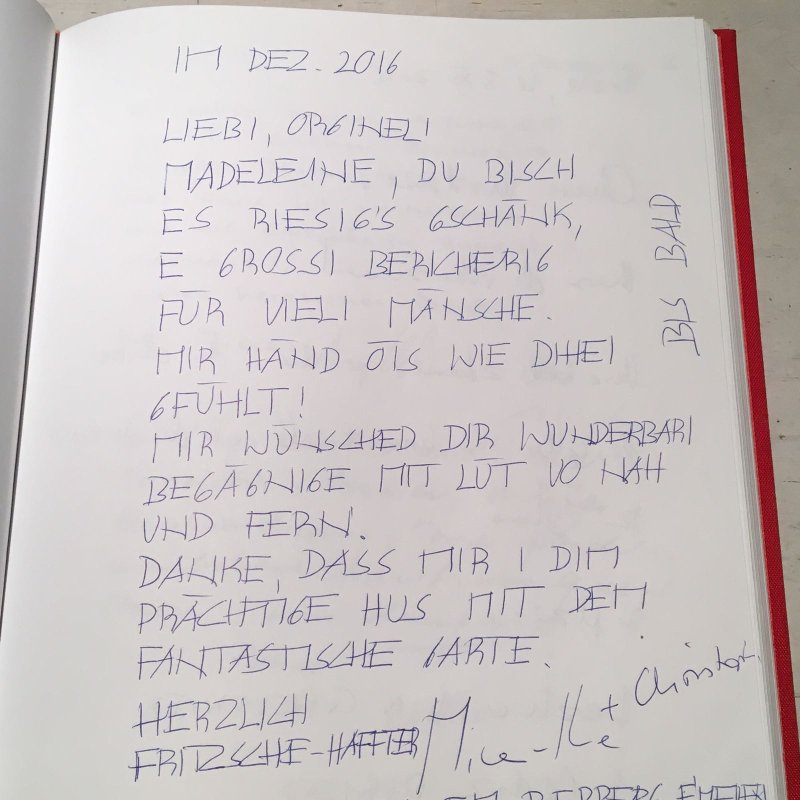 IM DEZ. 2016
LIEBI, ORGINELI
MADELEINE, DU BISCH
ES RIESIG'S GSCHÄNK,
E GROSSI BERICHERIG
FÜR VIELI MÄNSCHE.
MIR HÄND ÖIS WIE DIHEI
GFÜHLT!
MIR WÜNSCHED DIR WUNDERBARI
BEGÄGNIGE MIT LÜT VO NAH
UND FERN.
DANKE, DASS MIR I DIM
PRÄCHTIGE HUS MIT DEM
FANTASTISCHE GARTE.
HERZLICH
FRITZSCHE-HAFFTER
BIS BALD